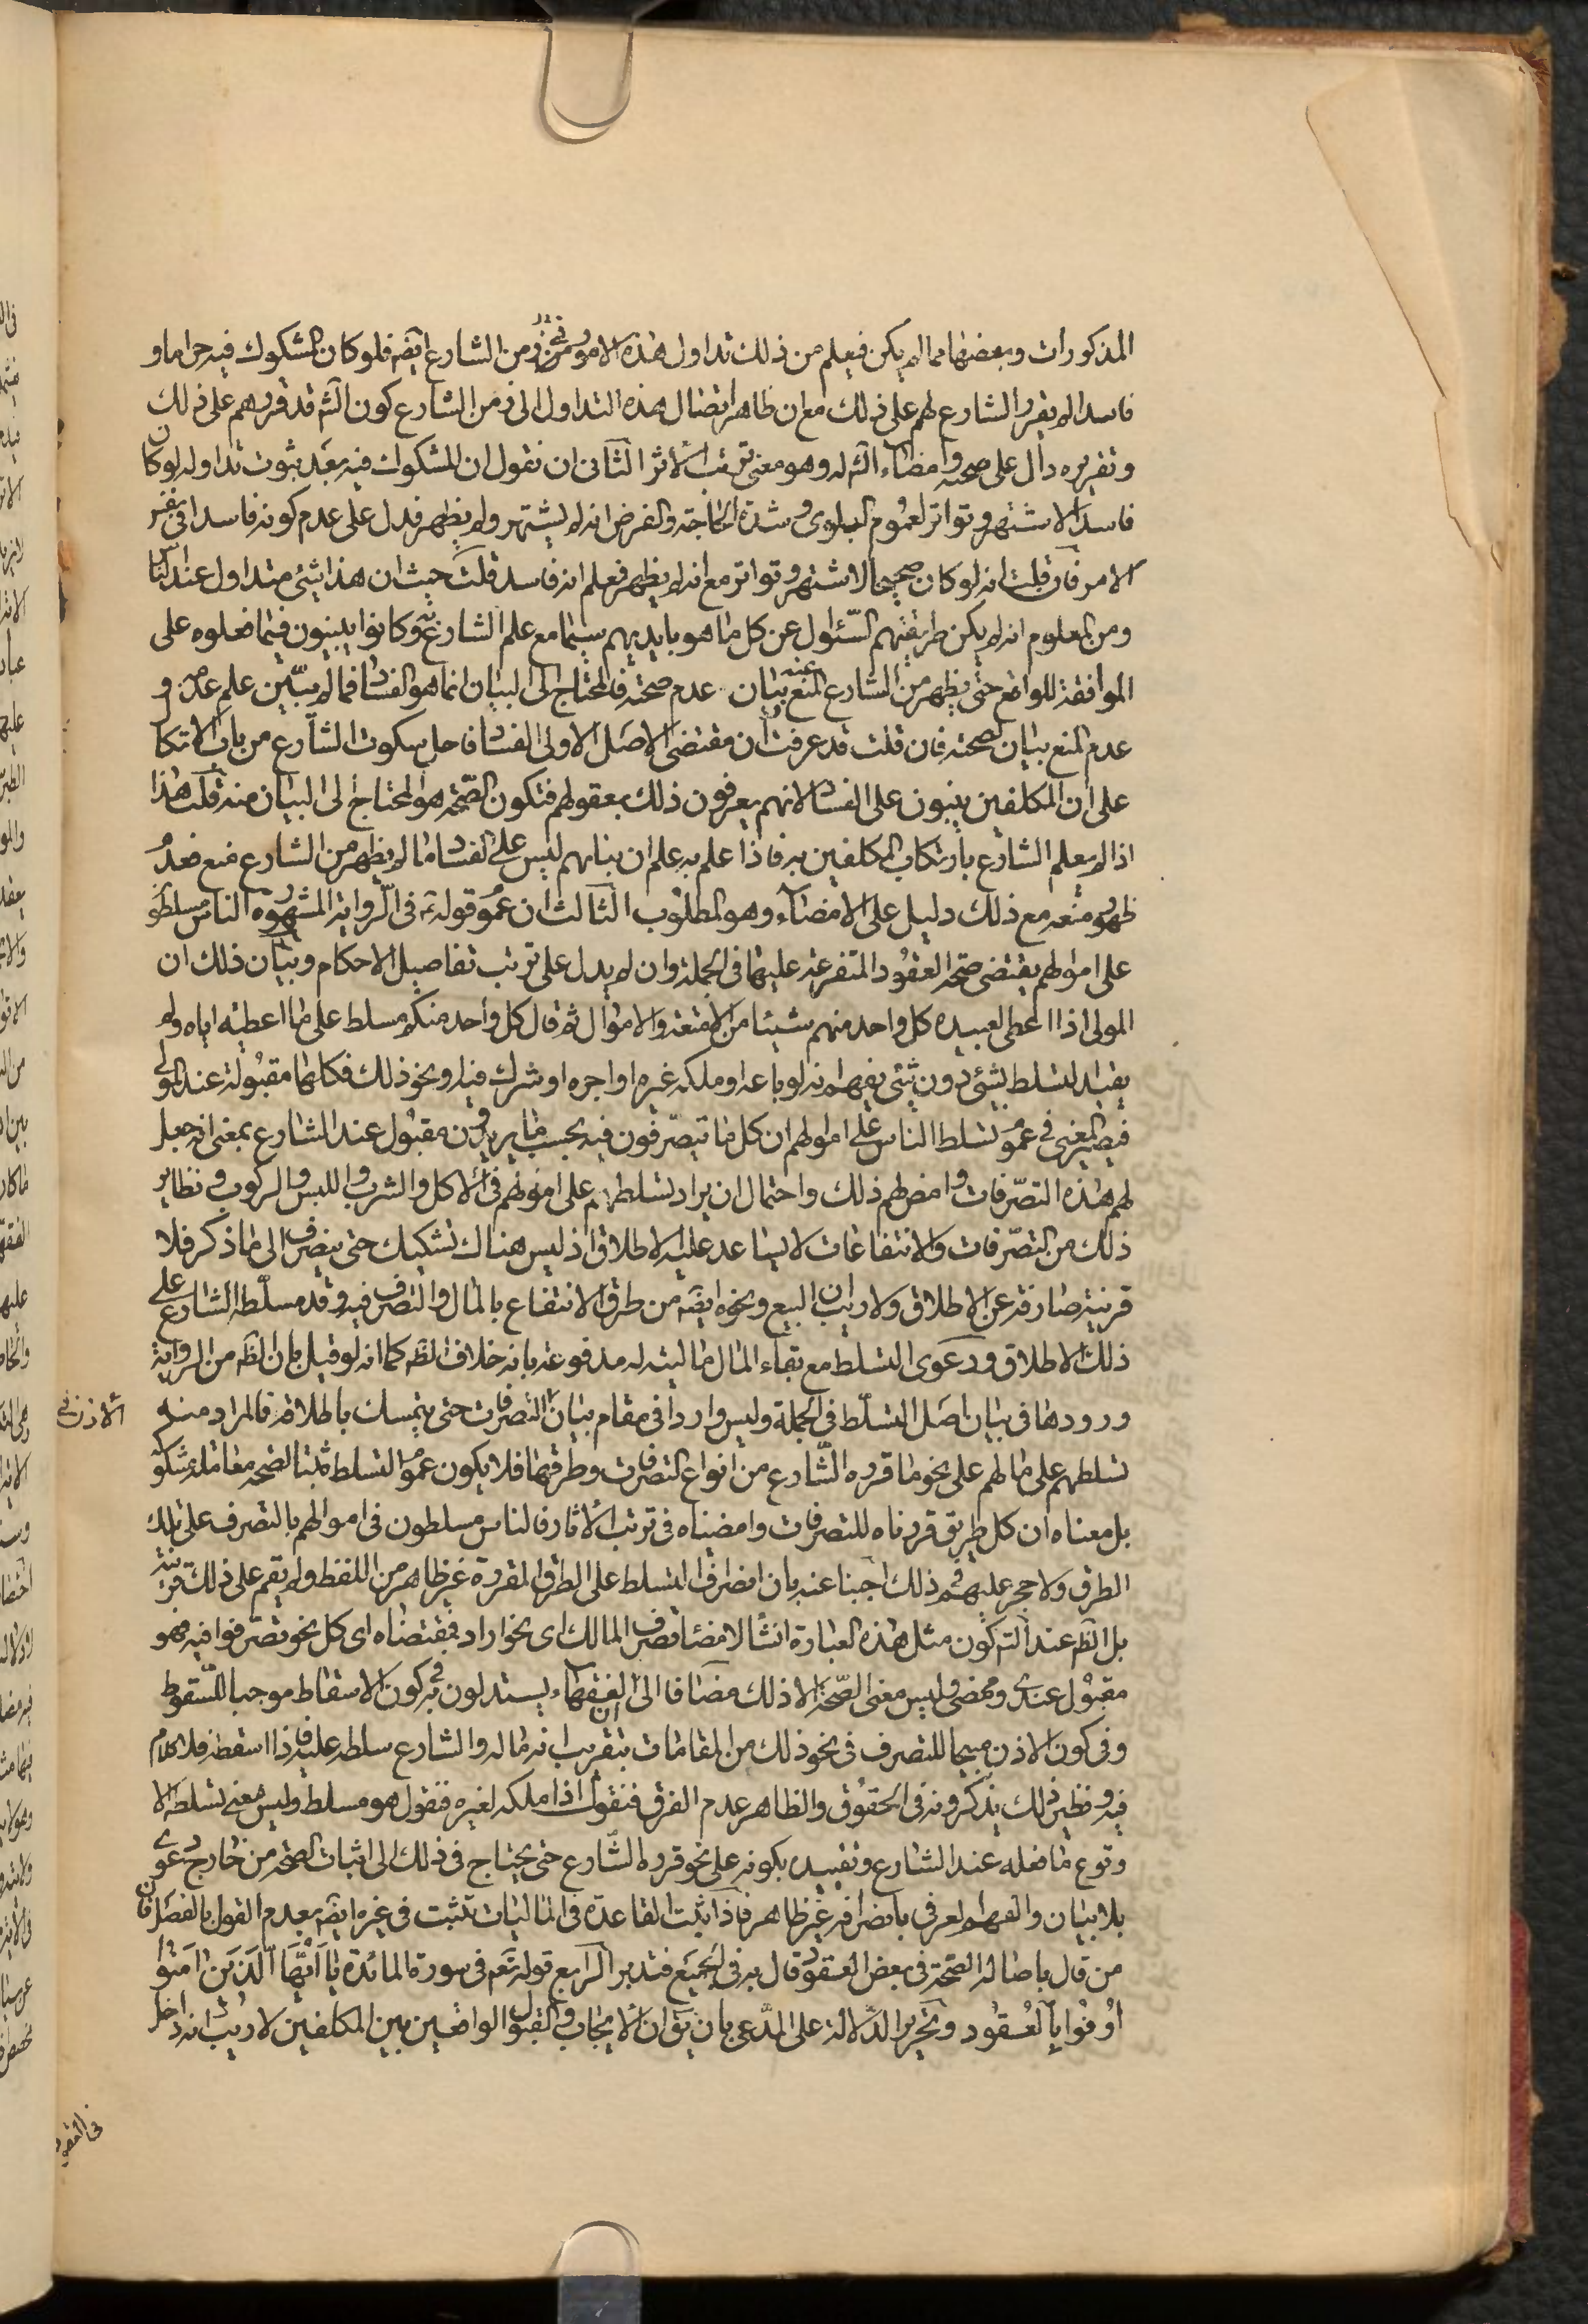 المذكورات وبعضها مما لم يكن فيعلم من ذلك تداول هذه الامور في زمن الشارع ايضه فلو كان المشكوك فيه حراما و
فاسدا لم يقرر الشارع لهم على ذلك مع ان ظاهر اتصال هذه التداول الى زمن الشارع كون الشه قد قررهم على ذلك
وتقريره دال على صحته وامضاء الشه له وهو معنى ترتب الأثر الثانى ان نقول ان المشكوك فيه بعد ثبوت تداوله لو كان
فاسدا لاشتهر وتواتر لعموم البلوى وشدة الحاجة والفرض انه لم يشتهر ولم يظهر فدل على عدم كونه فاسدا في نفس
الامر فان قلت انه لو كان صحيحا لاشتهر وتواتر مع انه لم يظهر فعلم انه فاسد قلت حيث ان هذا شئ متداول عند الناس
ومن المعلوم انه لم يكن طريقتهم السئوال عن كل ما هو بايديهم سيما مع علم الشارع به وكانوا يبنون فيما فعلوه على
الموافقة للواقع حتى يظهر من الشارع المنع عنه بيان عدم صحته فالمحتاج الى البيان انما هو الفساد فما لم يتبين علم عدمه و
عدم المنع بيان لصحته فان قلت قد عرفت ان مقتضى الاصل الاولى الفساد فاحل سكوت الشارع من باب الاتكال
على ان المكلفين يبنون على الفساد لانهم يعرفون ذلك بعقولهم فتكون الصحة هو المحتاج الى البيان منه قلت هذا
اذا لم يعلم الشارع بارتكاب المكلفين به فاذا علم به علم ان بنائهم ليس على الفساد ما لم يظهر من الشارع منع فعدم
ظهور منعه مع ذلك دليل على الامضاء وهو المطلوب الثالث ان عموم قوله ع في الرواية المشهورة الناس مسلطون
على اموالهم يقتضى صحة العقود المتفرعة عليها في الجملة وان لم يدل على ترتب تفاصيل الاحكام وبيان ذلك ان
المولى اذا اعطى لعبيده كل واحد منهم شيئا من الامتعة والاموال ثم قال كل واحد منكم مسلط على ما اعطيته اياه ولم
يقيد التسلط بشئ دون شئ يفهم انه لو باعه او ملكه غيره او اجره او شرك فيه ونحو ذلك فكلها مقبولة عند المولى
فيصير المعنى في عموم تسلط الناس على اموالهم ان كل ما يتصرفون فيه بحسب ما يريدون مقبول عند الشارع بمعنى انه جعل
لهم هذه التصرفات وامضى لهم ذلك واحتمال ان يراد تسلطهم على اموالهم في الأكل والشرب واللبس والركوب ونظاير
ذلك من التصرفات والانتفاعات لا يساعد عليه الاطلاق اذ ليس هناك تشكيك حتى ينصرف الى ما ذكر فلا
قرينة صارفة عن الاطلاق ولا ريب ان البيع ونحوه ايضه من طرق الانتفاع بالمال والتصرف فيه وقد سلطه الشارع على
ذلك الاطلاق ودعوى التسلط مع بقاء المال ماليته له مدفوعة بانه خلاف الظه كما انه لو قيل بان الظه من الرواية
ورودها في بيان اصل التسلط في الجملة وليس واردا في مقام بيان التصرفات حتى يتمسك باطلاقه فالمراد منه
الاذن في
تسلطهم على مالهم على نحو ما قرره الشارع من انواع التصرفات وطرقها فلا يكون عموم التسلط مثبتا لصحة معاملة مشكوكة
بل معناه ان كل طريق قررناه للتصرفات وامضيناه في ترتب الأثار فالناس مسلطون في اموالهم بالتصرف على تلك
الطرق ولا حجر عليهم في ذلك اجبنا عنه بان انصراف التسلط على الطرق المقررة غير ظاهر من اللفظ ولم يقم على ذلك قرينة
بل الظه عند التم كون مثل هذه العبارة انشاء لامضاء تصرف المالك اى نحو اراد فمقتضاه اى كل نحو تصرفوا فيه فهو
مقبول عندى وممضى وليس معنى الصحة الا ذلك مضافا الى ان الفقهاء يستدلون به في كون الاسقاط موجبا للسقوط
وفى كون الاذن مبيحا للتصرف في نحو ذلك من المقامات بتقريب انه ماله والشارع سلطه عليه فاذا اسقطه فلا كلام
فيه ونظير ذلك يذكرونه في الحقوق والظاهر عدم الفرق فنقول اذا ملكه لغيره فنقول هو مسلط وليس معنى تسلطه الا
وقوع ما فعله عند الشارع وتقييده بكونه على نحو قرره الشارع حتى يحتاج في ذلك الى اثبات الصحة من خارج دعوى
بلا بيان والفهم العرفي بانصرافه غير ظاهر فاذا ثبت القاعدة في الماليات تثبت في غيره ايضه بعدم القول بالفصل فان
من قال باصالة الصحة في بعض العقود قال به في الجميع فتدبر الرابع قوله تعه في سورة المائدة يا ايها الذين امنوا
اوفوا بالعقود وتحرير الدلالة على المدعى بان يق ان الايجاب والقبول الواقعين بين المكلفين لا ريب انه داخل
في العقود